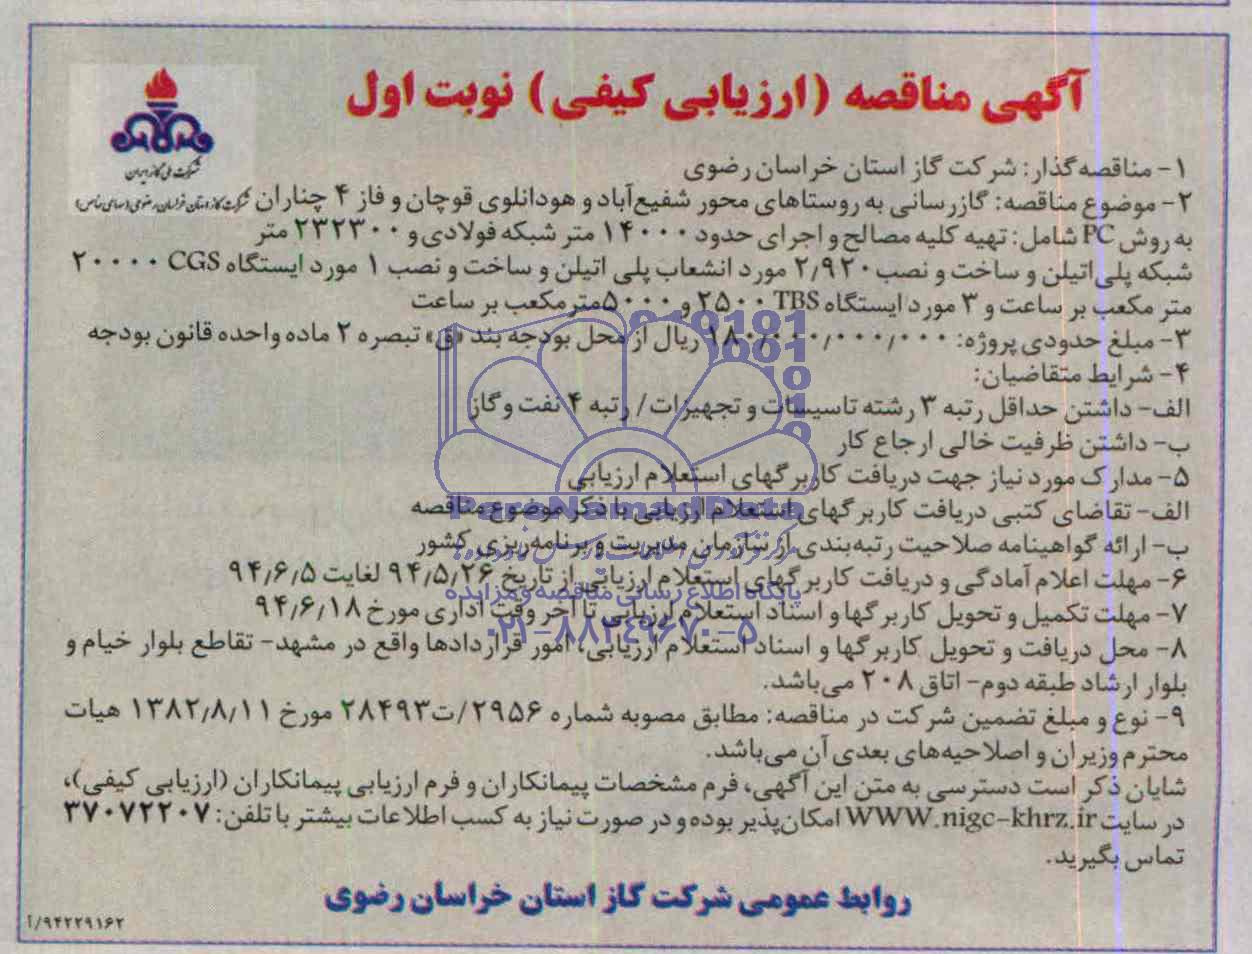 آگهی مناقصه (ارزیابی کیفی) نوبت اول
شرکت ملی گاز ایران
شرکت گاز استان خراسان رضوی (سهامی خاص)
۱- مناقصه‌گذار: شرکت گاز استان خراسان رضوی
۲- موضوع مناقصه: گازرسانی به روستاهای محور شفیع‌آباد و هودانلوی قوچان و فاز ۴ چناران
به روش PC شامل: تهیه کلیه مصالح و اجرای حدود ۱۴۰۰۰ متر شبکه فولادی و ۲۳۲۳۰۰ متر
شبکه پلی‌اتیلن و ساخت و نصب ۲٫۹۲۰ مورد انشعاب پلی اتیلن و ساخت و نصب ۱ مورد ایستگاه CGS ۲۰۰۰۰
متر مکعب بر ساعت و ۳ مورد ایستگاه TBS ۲۵۰۰ و ۵۰۰۰ مترمکعب بر ساعت
۳- مبلغ حدودی پروژه: ۱۸۰٫۰۰۰٫۰۰۰٫۰۰۰ ریال از محل بودجه بند «ق» تبصره ۲ ماده واحده قانون بودجه
۴- شرایط متقاضیان:
الف- داشتن حداقل رتبه ۳ رشته تاسیسات و تجهیزات / رتبه ۴ نفت و گاز
ب- داشتن ظرفیت خالی ارجاع کار
۵- مدارک مورد نیاز جهت دریافت کاربرگهای استعلام ارزیابی
الف- تقاضای کتبی دریافت کاربرگهای استعلام ارزیابی با ذکر موضوع مناقصه
ب- ارائه گواهینامه صلاحیت رتبه‌بندی از سازمان مدیریت و برنامه‌ریزی کشور
۶- مهلت اعلام آمادگی و دریافت کاربرگهای استعلام ارزیابی از تاریخ ۹۴٫۵٫۲۶ لغایت ۹۴٫۶٫۵
۷- مهلت تکمیل و تحویل کاربرگها و اسناد استعلام ارزیابی تا آخر وقت اداری مورخ ۹۴٫۶٫۱۸
۸- محل دریافت و تحویل کاربرگها و اسناد استعلام ارزیابی، امور قراردادها واقع در مشهد- تقاطع بلوار خیام و
بلوار ارشاد طبقه دوم- اتاق ۲۰۸ می‌باشد.
۹- نوع و مبلغ تضمین شرکت در مناقصه: مطابق مصوبه شماره ۲۹۵۶/ت۲۸۴۹۳ مورخ ۱۳۸۲٫۸٫۱۱ هیات
محترم وزیران و اصلاحیه‌های بعدی آن می‌باشد.
شایان ذکر است دسترسی به متن این آگهی، فرم مشخصات پیمانکاران و فرم ارزیابی پیمانکاران (ارزیابی کیفی)،
در سایت WWW.nigc-khrz.ir امکان‌پذیر بوده و در صورت نیاز به کسب اطلاعات بیشتر با تلفن: ۳۷۰۷۲۲۰۷
تماس بگیرید.
روابط عمومی شرکت گاز استان خراسان رضوی
۹۴۲۲۹۱۶۲/آ
ParsNamadData
پایگاه اطلاع رسانی مناقصه و مزایده
۰۲۱-۸۸۲۴۹۶۷۰-۵